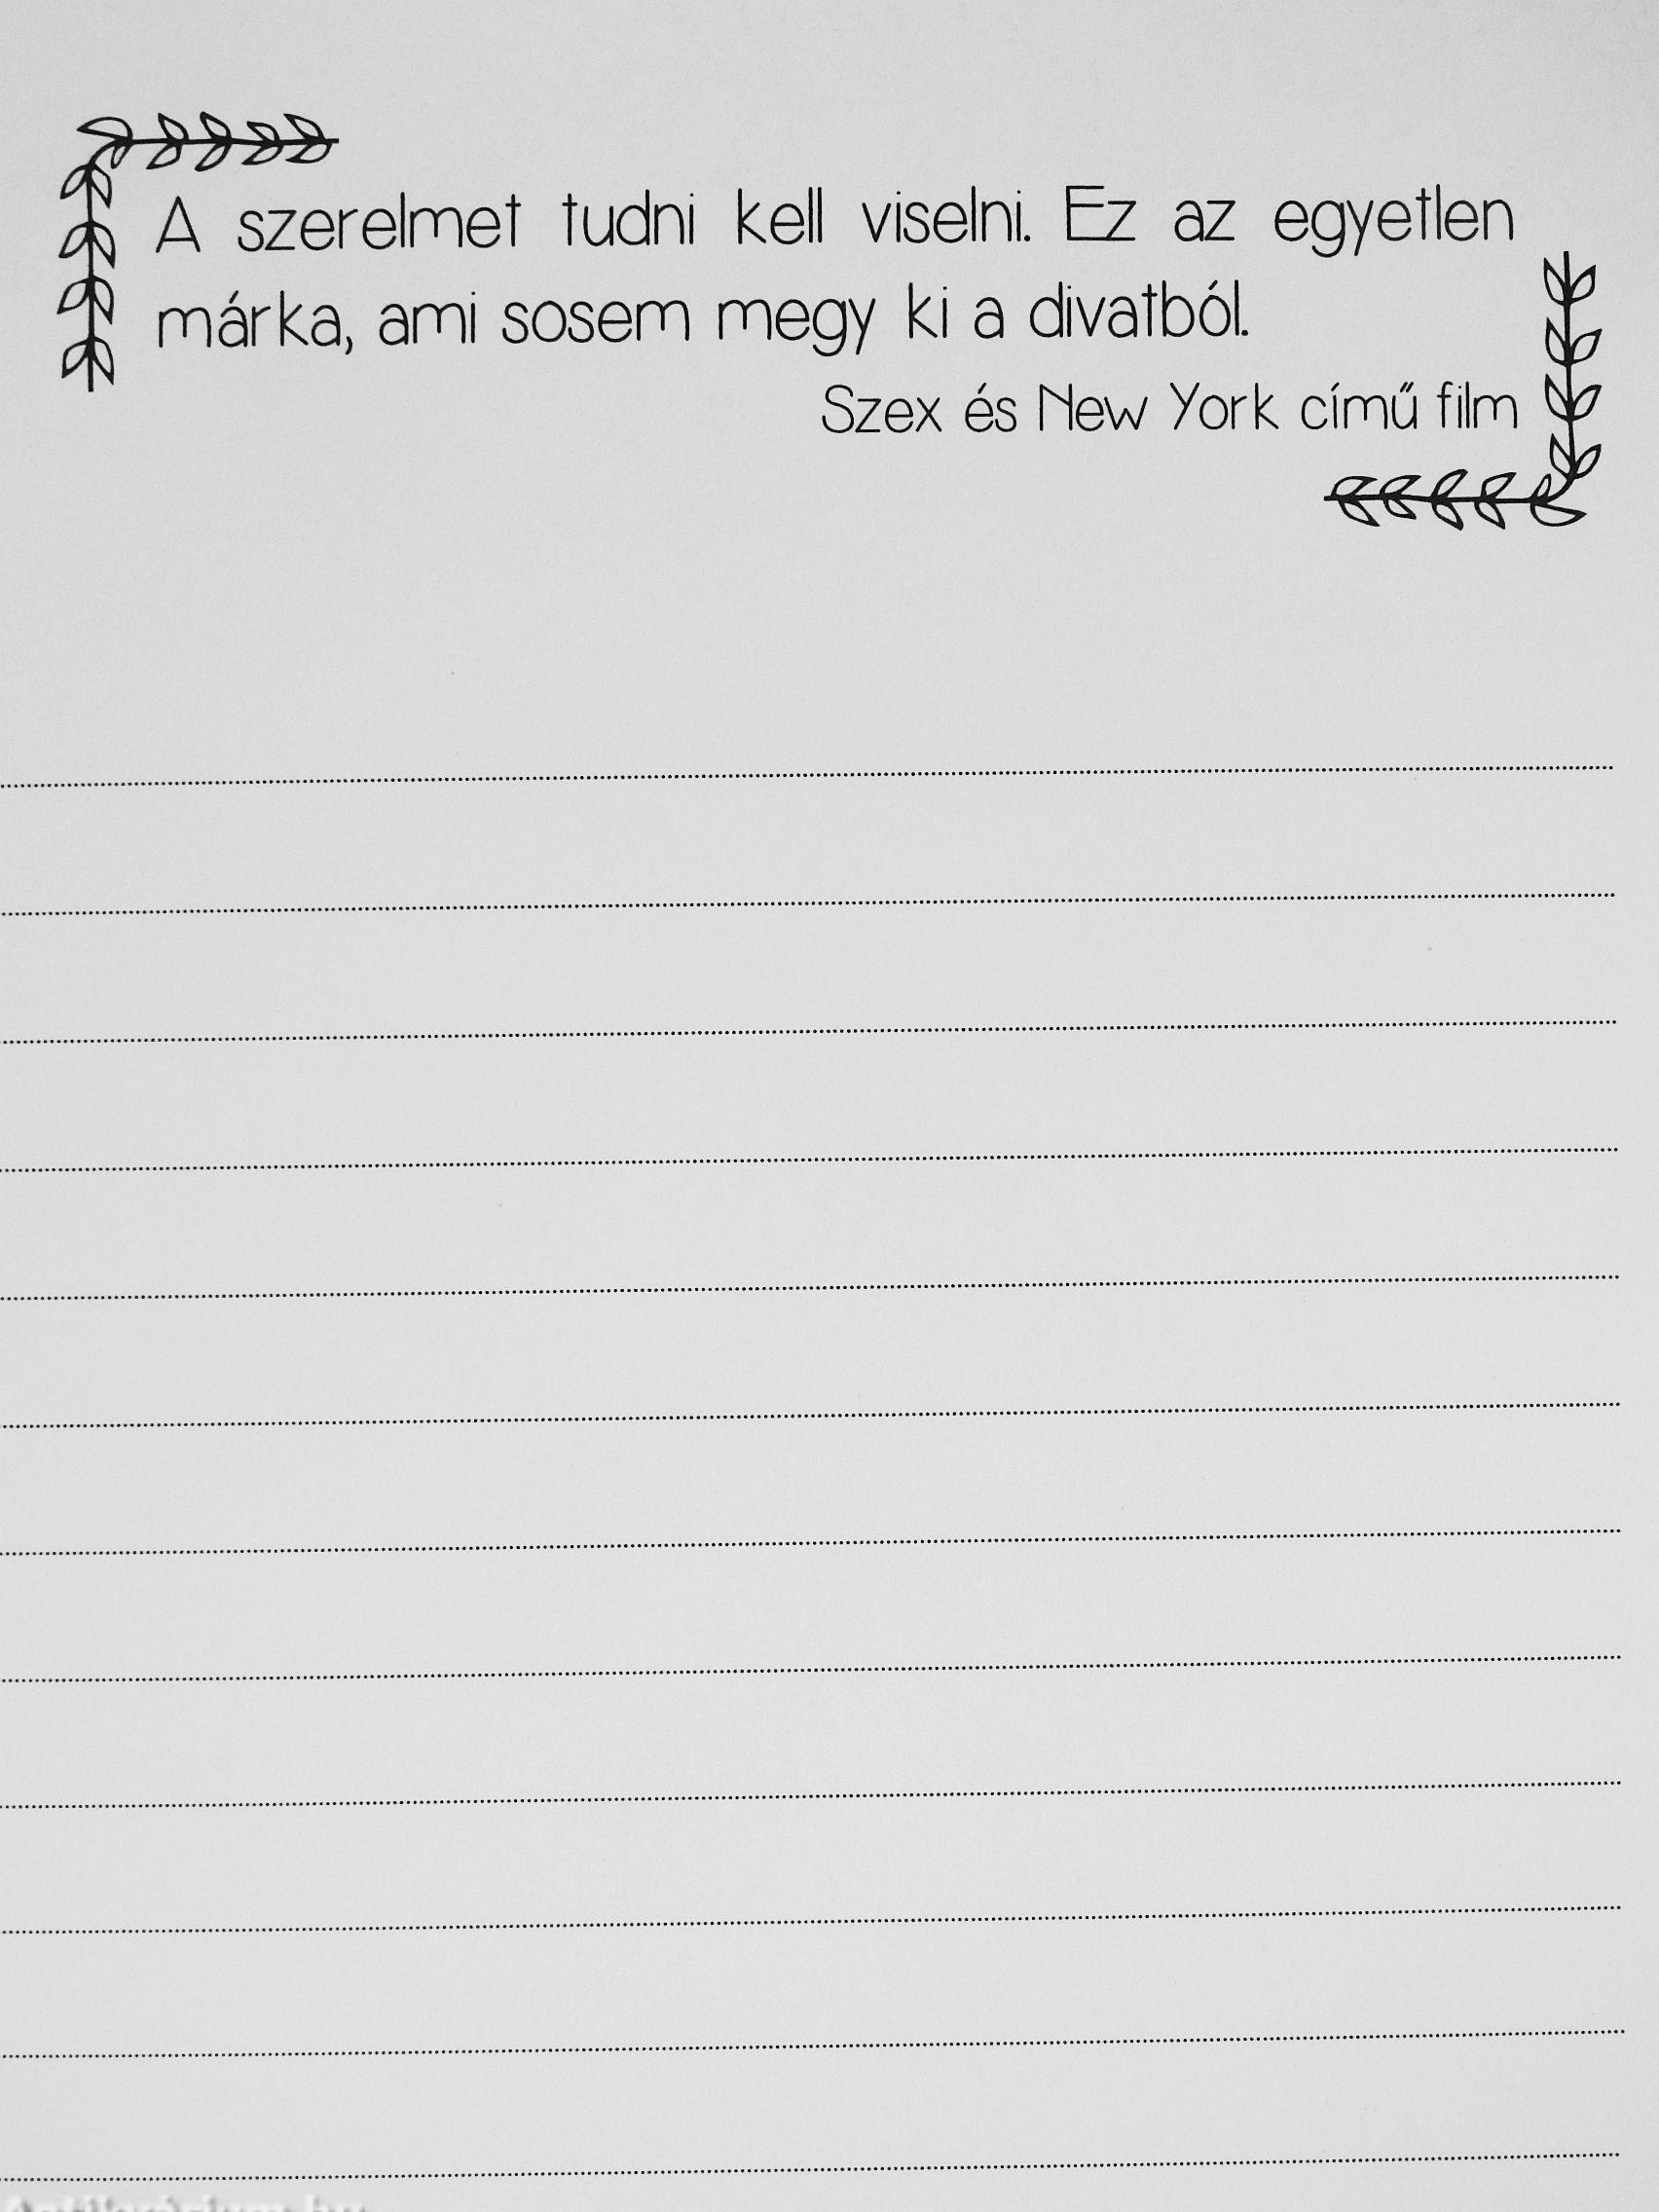 A szerelmet tudni kell viselni. Ez az egyetlen
márka, ami sosem megy ki a divatból.
Szex és New York című film